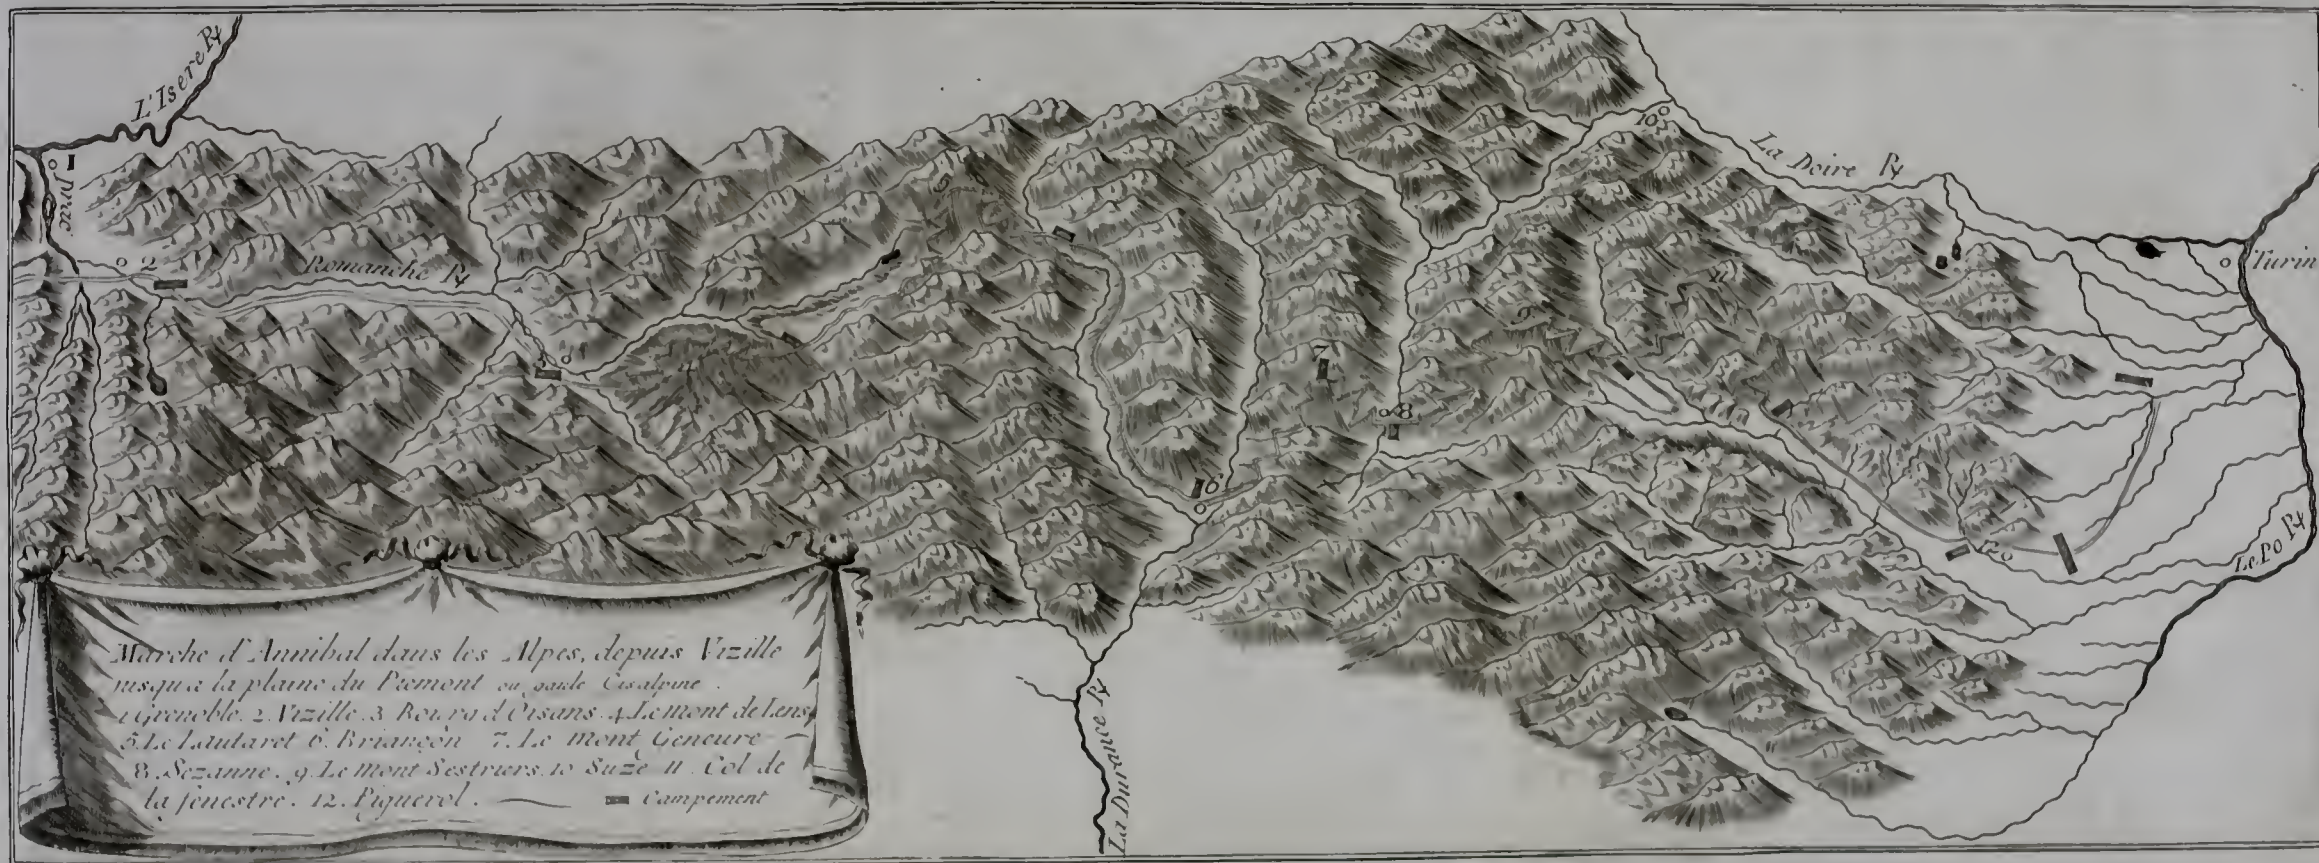 L'Isere R.
1
Drac
2
Romanche R.
3
5
6
7
8
9
10
11
La Doire R.
Turin
12
Le Po R.
La Durance R.
Marche d'Annibal dans les Alpes, depuis Vizille
jusqu'a la plaine du Piemont ou gaule Cisalpine.
1 Grenoble. 2. Vizille. 3. Bourg d'Oisans. 4. Le mont de Lens
5. Le Lautaret 6. Briançon 7. Le mont Geneure
8. Sezanne. 9. Le mont Sestriers. 10 Suze 11. Col de
la fenestre. 12. Pignerol. Campement